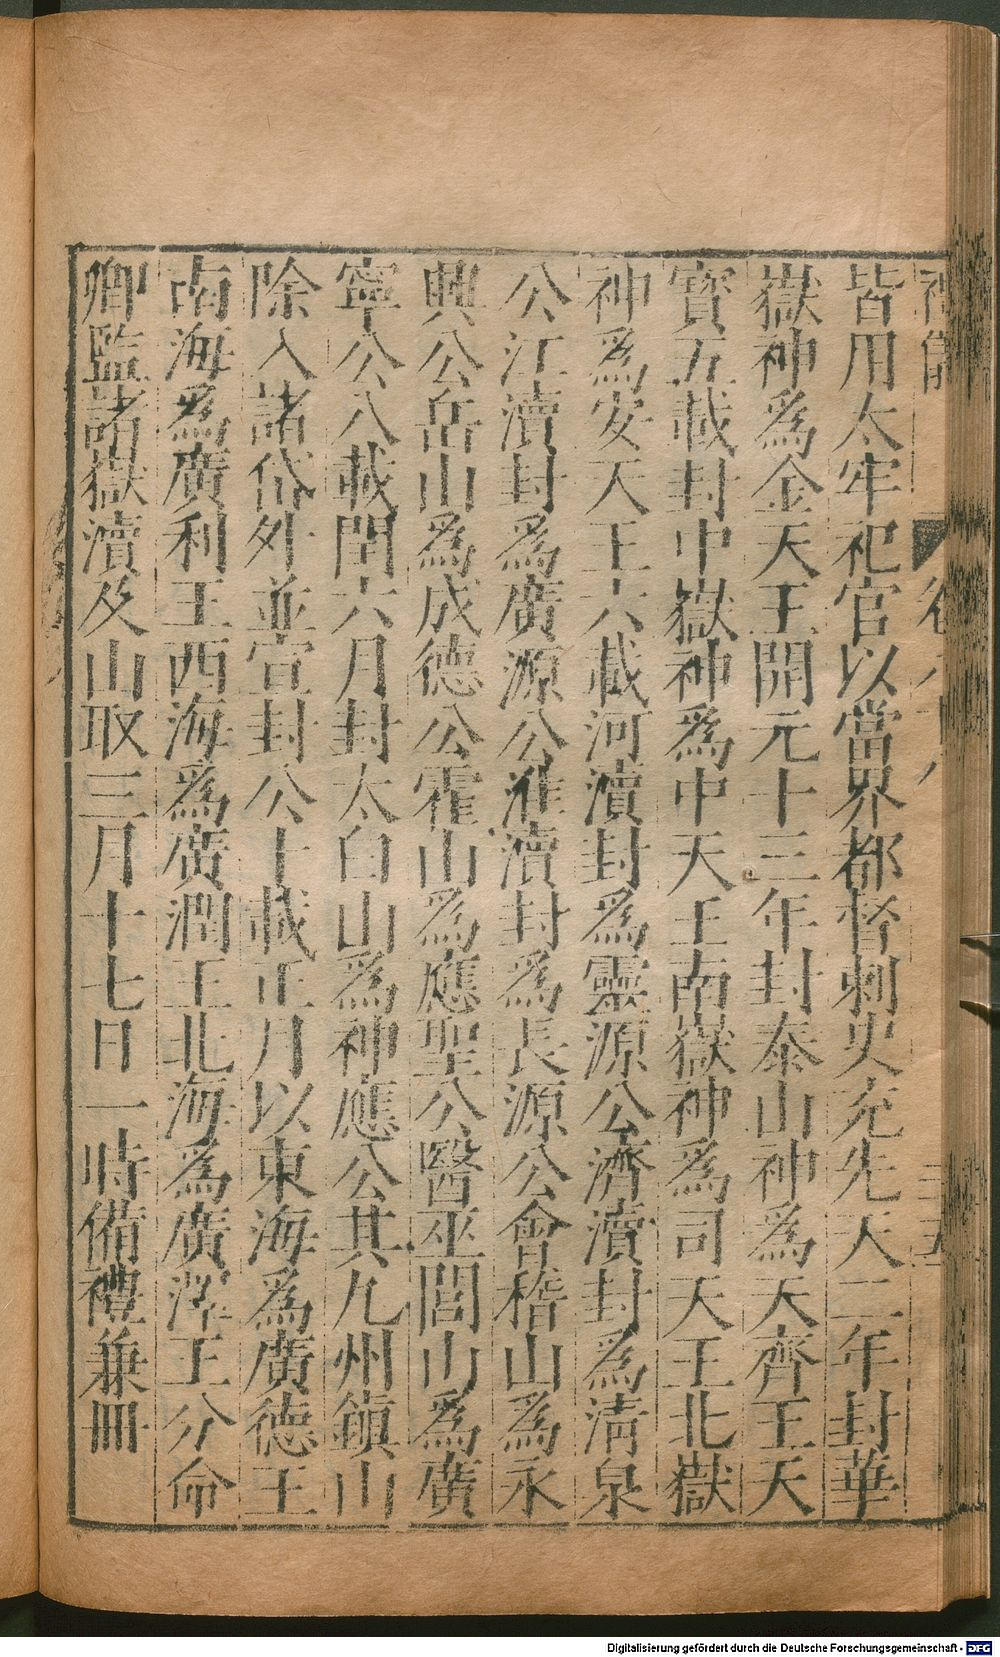 皆用太牢祀官以當界都督刺史充先天二年封華
嶽神為金天王開元十三年封泰山神為天齊王天
寶五載封中嶽神為中天王南嶽神為司天王北嶽
神爲安天王六載河瀆封爲靈源公濟瀆封爲清泉
公江瀆封爲廣源公淮瀆封爲長源公會稽山爲永
興公岳山爲成德公霍山爲應聖公醫巫閭山爲廣
寧公八載閏六月封太白山爲神應公其九州鎮山
除入諸岱外並宣封公十載正月以東海爲廣德王
南海爲廣利王西海爲廣潤王北海爲廣澤王分命
卿監諸嶽瀆及山取三月十七日一時備禮兼冊
Digitalisierung gefördert durch die Deutsche Forschungsgemeinschaft - DFG